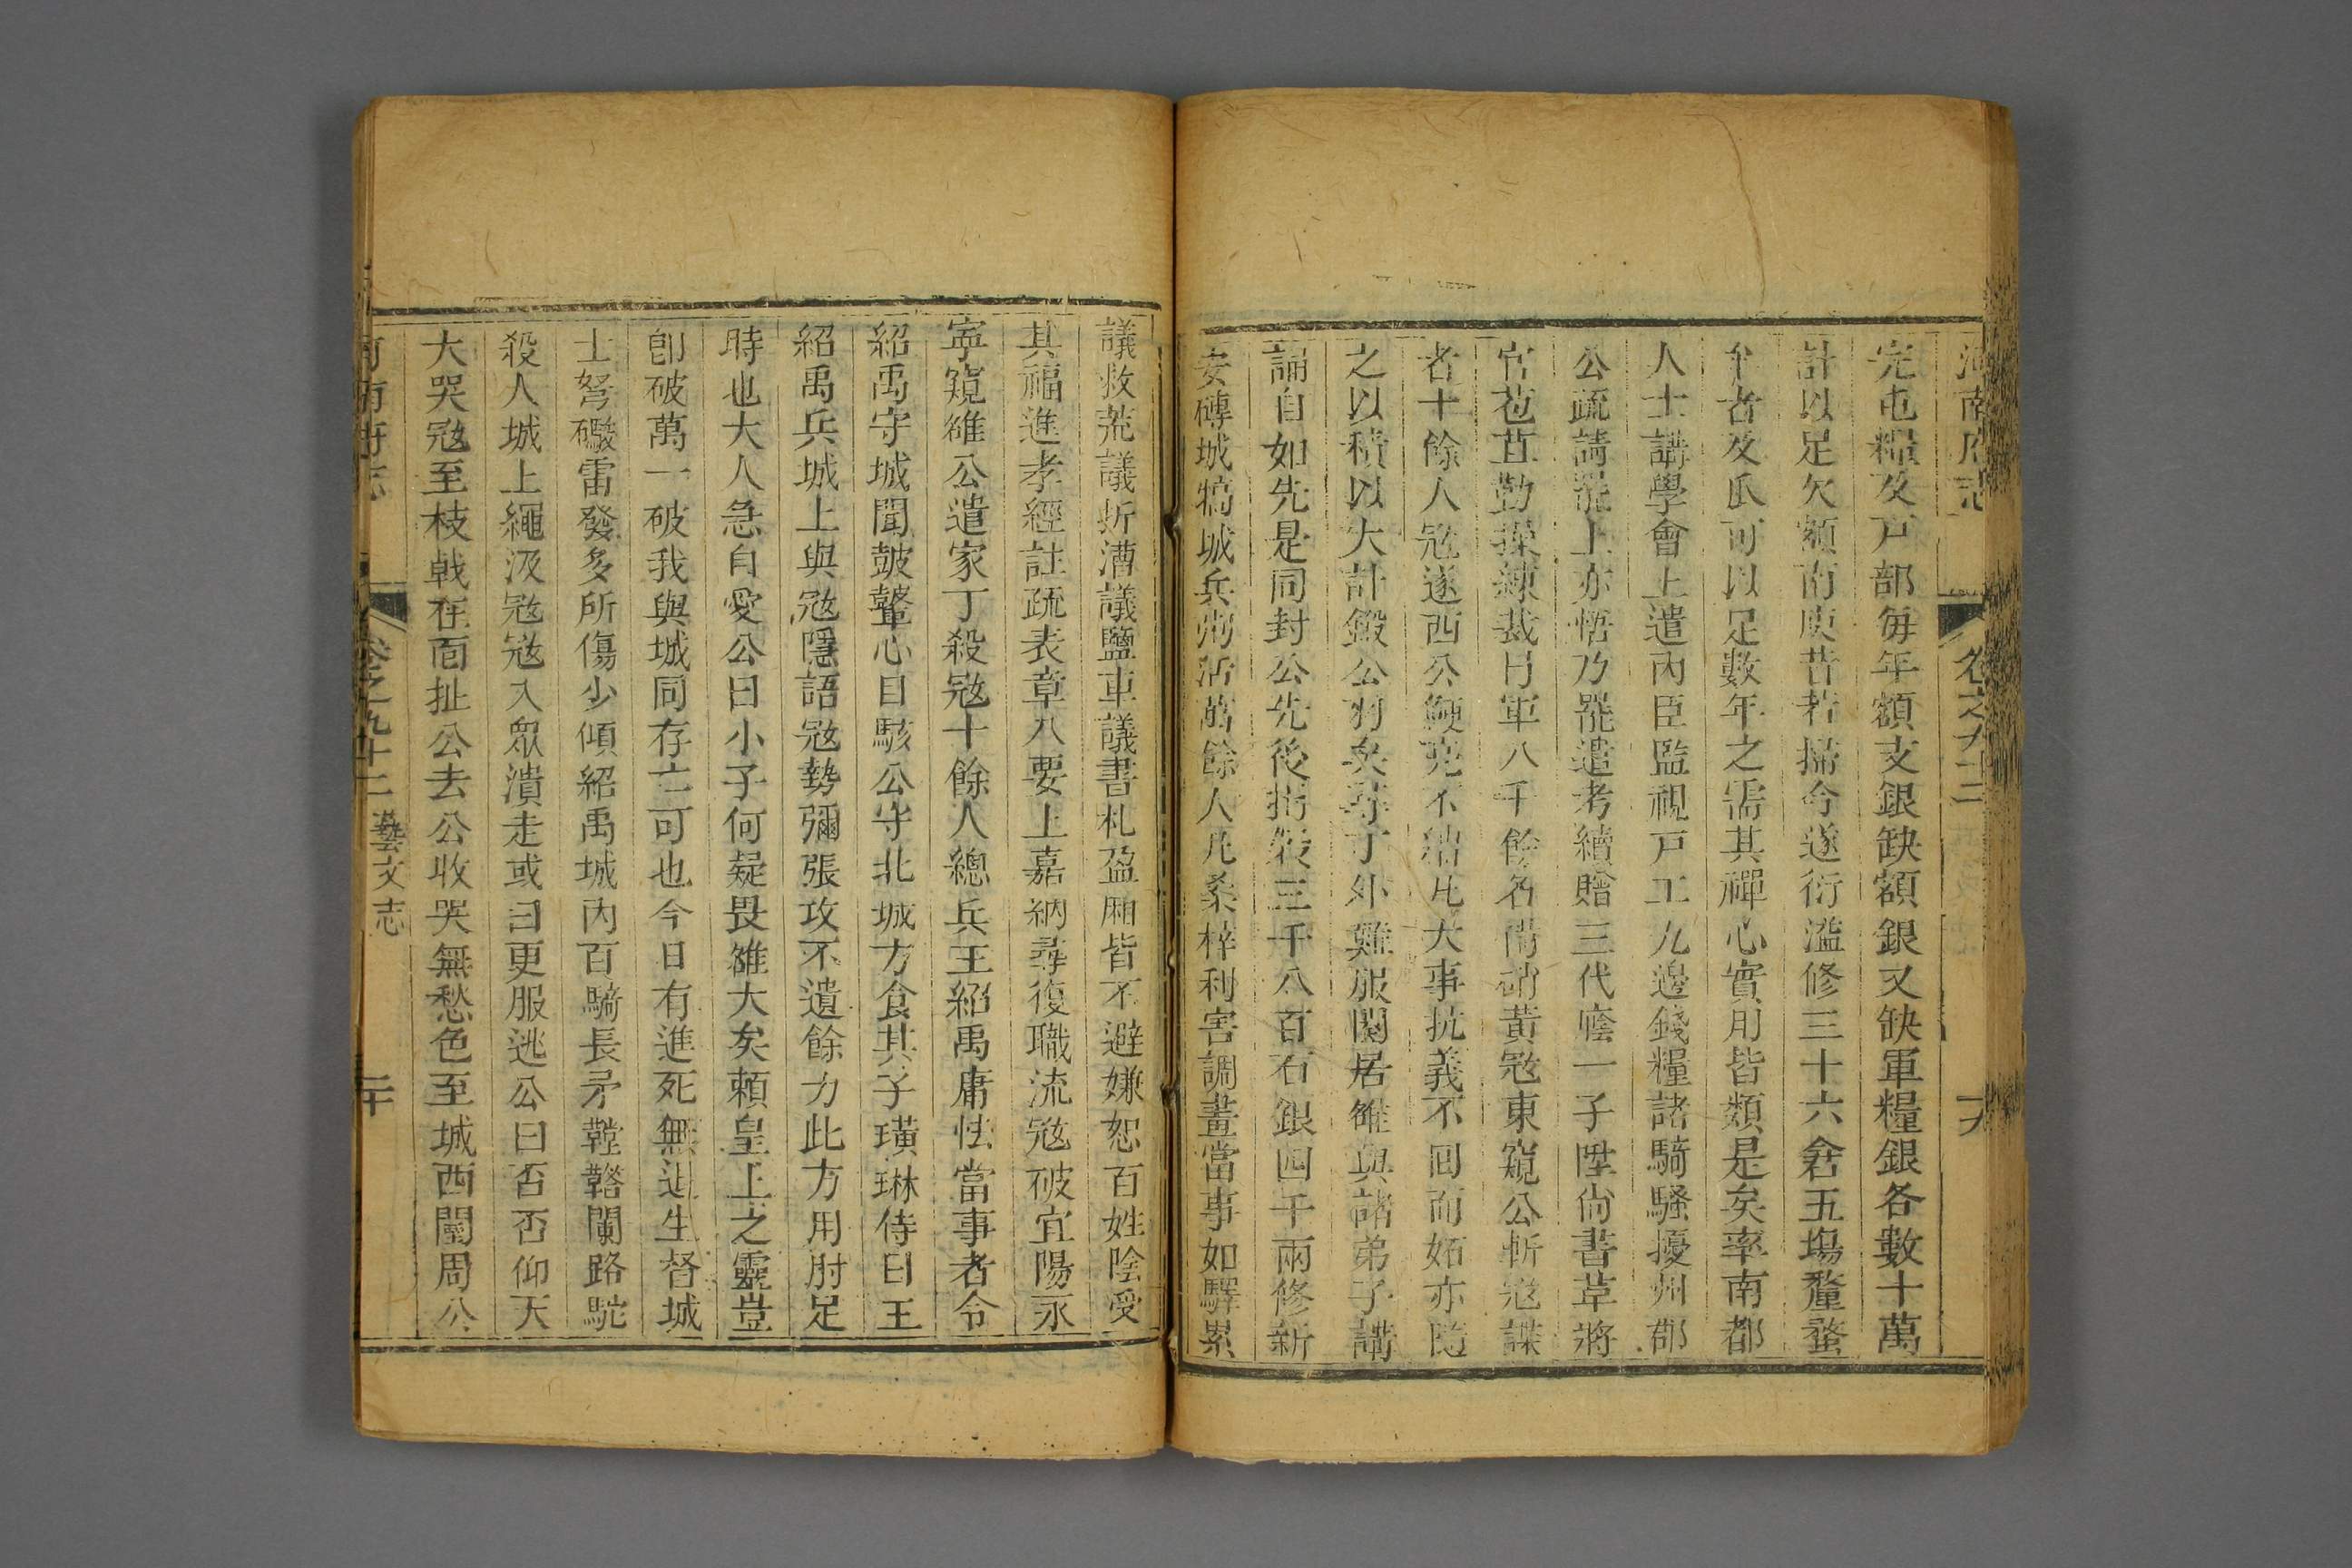 河南府志 卷之九十二
完屯糧及戸部每年額支銀缺額銀又缺軍糧銀各數十萬
計以足欠額南庾昔若掃今遂衍溢修三十六倉五塲釐蝥
者及瓜可以足數年之需其禪心實用皆類是矣率南都
人士講學會上遣內臣監視戸工九邊錢糧諸騎騷擾州郡
公疏請罷上亦悟乃罷遣考績贈三代廕一子陞尚書草將
官苞苴勤操練裁月軍八千餘名備硝黃冦東窺公斬冦諜
者十餘人冦遂西公鯁亮不繑凡大事抗義不回而妬亦隨
之以積以大計鍛公羽矣尋丁外艱服闋居雒與諸弟子講
誦自如先是同封公先後捐穀三千八百石銀四千兩修新
安磚城犒城兵粥活萬餘人凡桑梓利害調畫當事如驛累
議救荒議折漕議鹽車議書札盈廂皆不避嫌恕百姓陰受
其福進孝經註疏表章八要上嘉納尋復職流冦破宜陽永
寧窺雒公遣家丁殺冦十餘人總兵王紹禹庸怯當事者令
紹禹守城聞皷鼙心目駭公守北城方食其子璜琳侍曰王
紹禹兵城上與冦隱語冦勢彌張攻不遺餘力此方用肘足
時也大人急自愛公曰小子何疑畏雒大矣頼皇上之靈豈
卽破萬一破我與城同存亡可也今日有進死無退生督城
士弩礮雷發多所傷少傾紹禹城內百騎長矛鞺鞳闌路駞
殺人城上繩汲冦冦入眾潰走或曰更服逃公曰否否仰天
大哭冦至枝戟在面扯公去公收哭無愁色至城西關周公
河南府志 卷之九十二 藝文志 二十